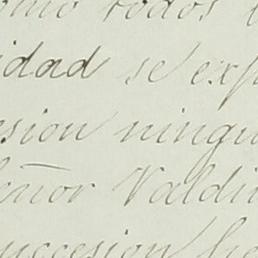 omo todos
idad se exp
esion ningu
eñor Valdi
uccesion he